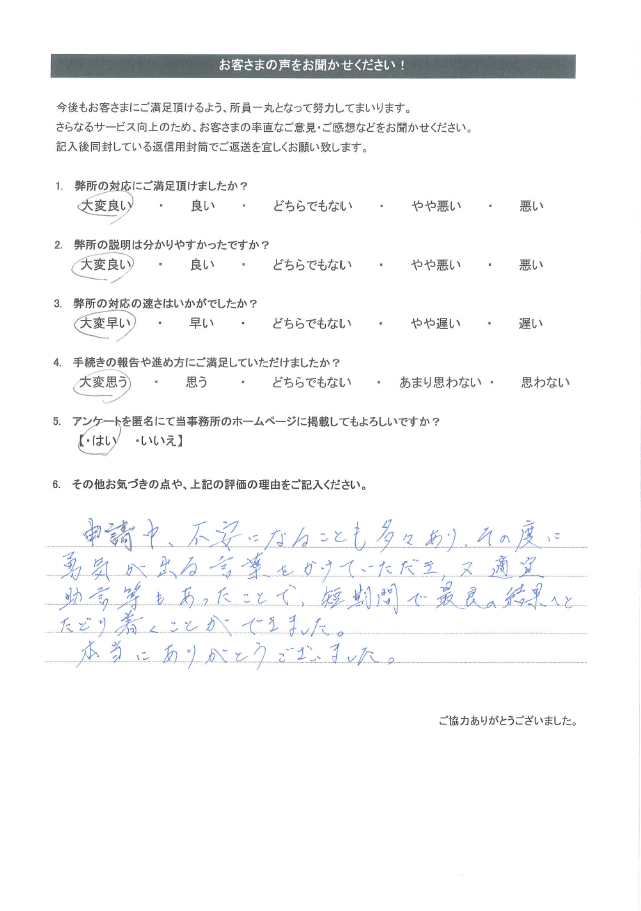 お客さまの声をお聞かせください！
今後もお客さまにご満足頂けるよう、所員一丸となって努力してまいります。
さらなるサービス向上のため、お客さまの率直なご意見・ご感想などをお聞かせください。
記入後同封している返信用封筒でご返送を宜しくお願い致します。
1. 弊所の対応にご満足頂けましたか？
大変良い ・ 良い ・ どちらでもない ・ やや悪い ・ 悪い
2. 弊所の説明は分かりやすかったですか？
大変良い ・ 良い ・ どちらでもない ・ やや悪い ・ 悪い
3. 弊所の対応の速さはいかがでしたか？
大変早い ・ 早い ・ どちらでもない ・ やや遅い ・ 遅い
4. 手続きの報告や進め方にご満足していただけましたか？
大変思う ・ 思う ・ どちらでもない ・ あまり思わない ・ 思わない
5. アンケートを匿名にて当事務所のホームページに掲載してもよろしいですか？
【・はい ・いいえ】
6. その他お気づきの点や、上記の評価の理由をご記入ください。
申請中、不安になることも多々あり、その度に
勇気が出る言葉をかけていただき、又適宜
助言等もあったことで、短期間で最良の結果へと
たどり着くことができました。
本当にありがとうございました。
ご協力ありがとうございました。